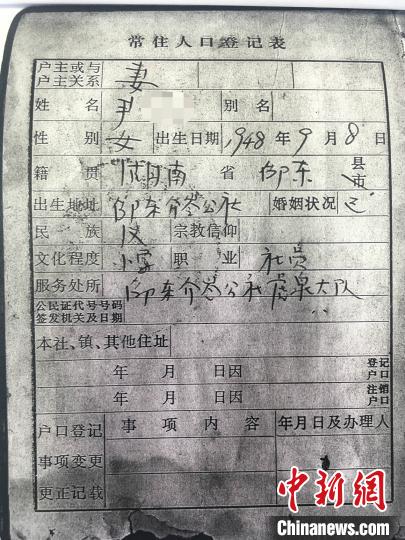 常住人口登记表
户主或与户主关系 妻
姓名 尹 别名
性别 女 出生日期 1948年9月8日
籍贯 湖南省 邵东 县市
出生地址 邵东 公社 婚姻状况 已
民族 汉 宗教信仰
文化程度 小学 职业 社员
服务处所 邵东 公社 大队
公民证代号号码
签发机关及日期
本社、镇、其他住址
年 月 日因 登记户口
年 月 日因 注销户口
户口登记事项变更更正记载 事项内容 年月日及办理人
中新网
Chinanews.com